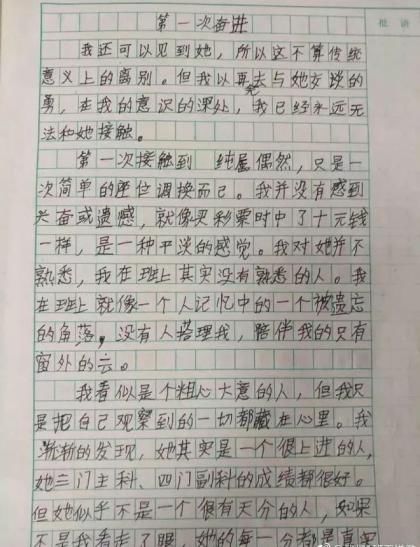 批语
第一次奋进
我还可以见到她，所以这不算传统
意义上的离别。但我以再去与她交谈的
勇，在我的意识的深处，我已经永远无
法和她接触。
第一次接触到 纯属偶然，只是一
次简单的座位调换而己。我并没有感到
兴奋或遗憾，就像买彩票时中了十元钱
一样，是一种平淡的感觉。我对她并不
熟悉，我在班上其实没有熟悉的人。我
在班上就像一个人记忆中的一个被遗忘
的角落，没有人搭理我，陪伴我的只有
窗外的云。
我看似是个粗心大意的人，但我只
是把自己观察到的一切都藏在心里。我
渐渐的发现，她其实是一个很上进的人，
她三门主科、四门副科的成绩都很好。
但她似乎不是一个很有天分的人，如果
不是我看走了眼，她的每一分都是真实